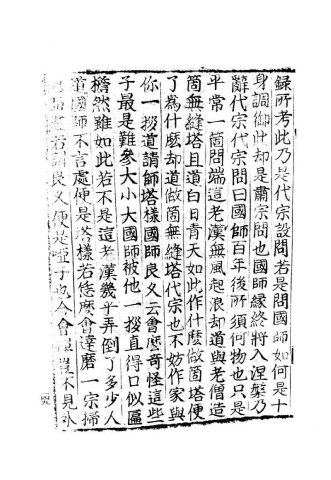 録所考此乃是代宗設問若是問國師如何是十
身調御此却是肅宗問也國師縁終將入涅槃乃
辭代宗代宗問曰國師百年後所須何物也只是
平常一箇問端這老漢無風起浪却道與老僧造
箇無縫塔且道白日青天如此作什麼做箇塔便
了為什麼却道做箇無縫塔代宗也不妨作家與
你一拶道請師塔樣國師良久云會麼奇怪這些
子最是難參大小大國師被他一拶直得口似匾
檐然雖如此若不是這老漢幾乎弄倒了多少人
道國師不言處便是塔樣若恁麼會達磨一宗掃
若謂良久便是啞子也合會禪豈不見外